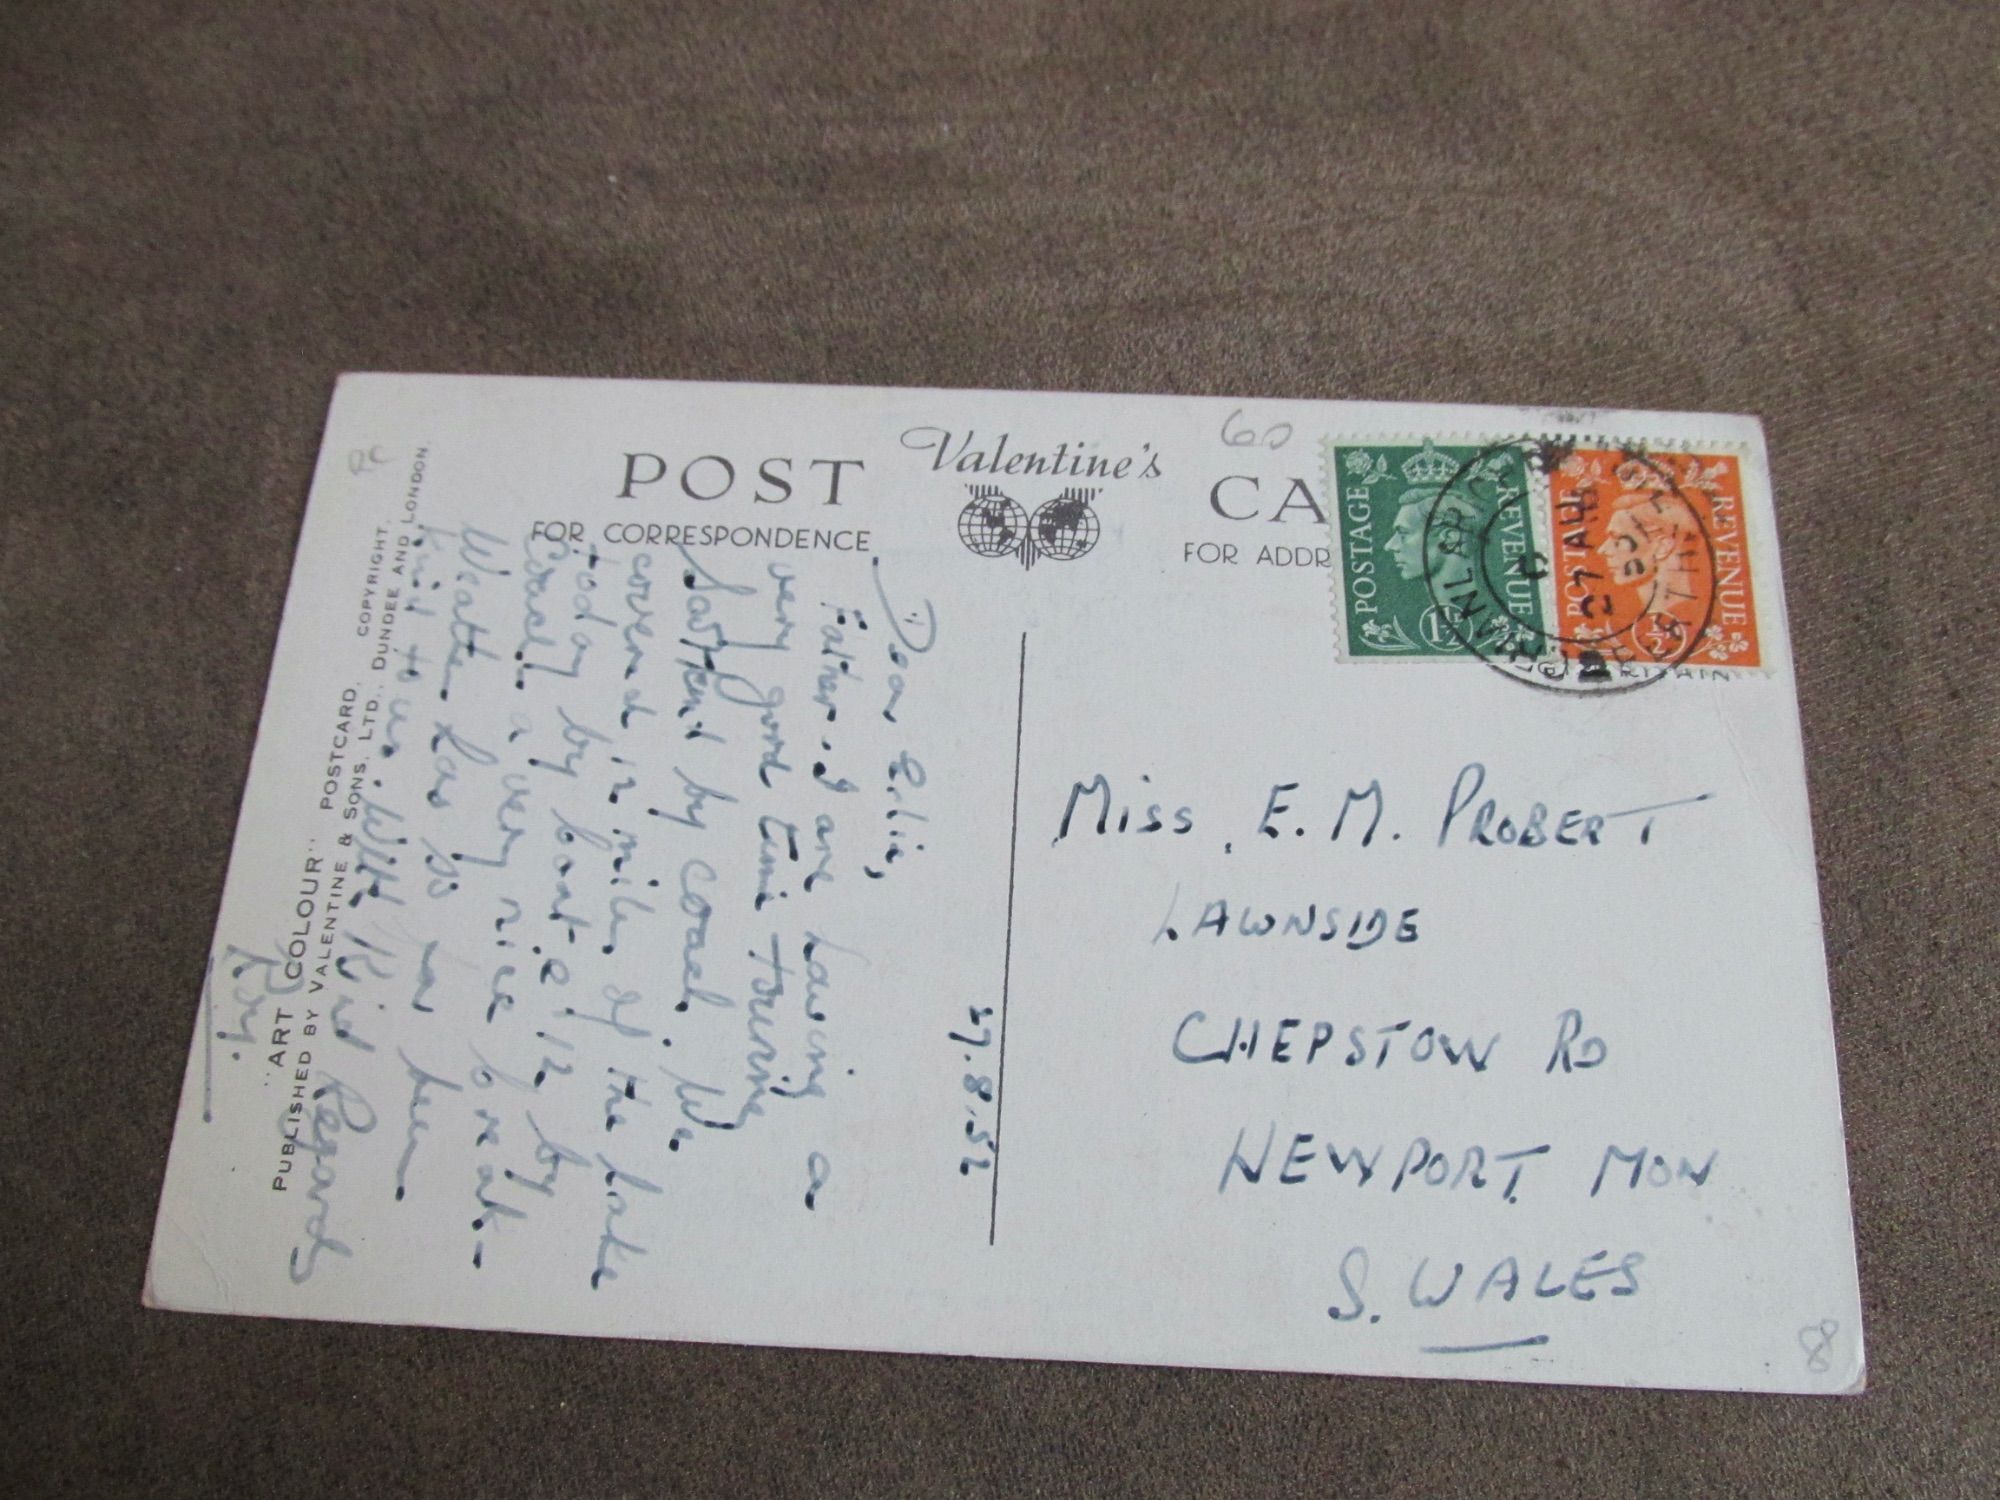 POST
Valentine's
CA
FOR CORRESPONDENCE
FOR ADDR
POSTAGE REVENUE 1½
POSTAGE REVENUE ½
27 AU
60
Dear
Father & I are having a
very good time touring
by coach. We
covered 12 miles of the lake
today by boat & 12 by
coach. a very nice break.
Weather has so far been
kind to us. With Kind Regards
Roy.
27.8.52
Miss. E. M. PROBERT
LAWNSIDE
CHEPSTOW RD
NEWPORT. MON
S. WALES
"ART COLOUR" POSTCARD. COPYRIGHT.
PUBLISHED BY VALENTINE & SONS, LTD., DUNDEE AND LONDON.
8